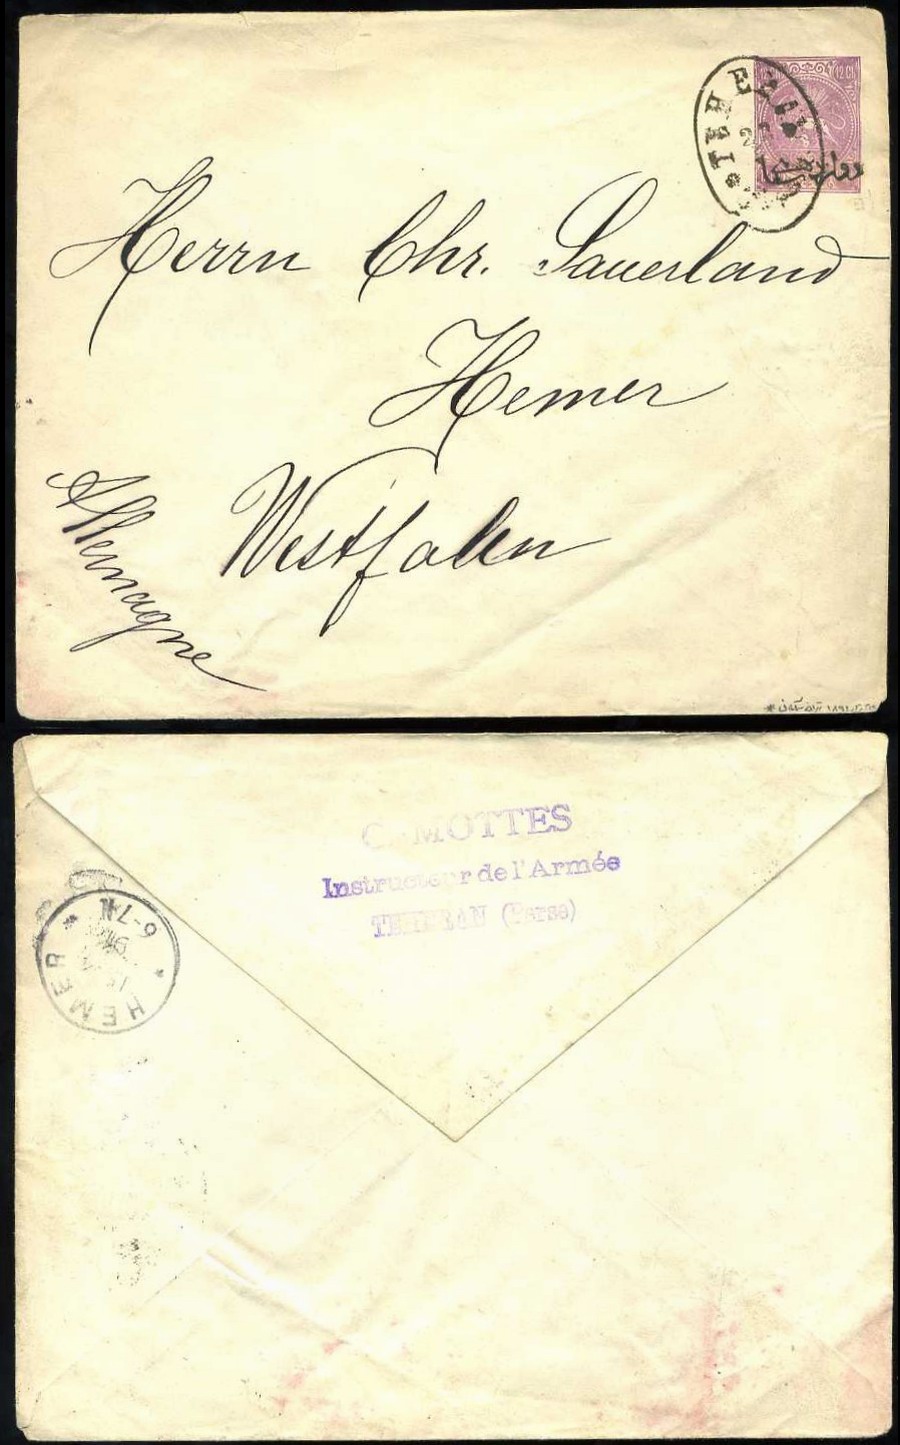 12 CH.
TEHERAN
Herrn Chr. Sauerland
Hemer
Westfalen
Allemagne
MOTTES
Instructeur de l'Armée
TEHERAN (Perse)
HEMER
6-7N